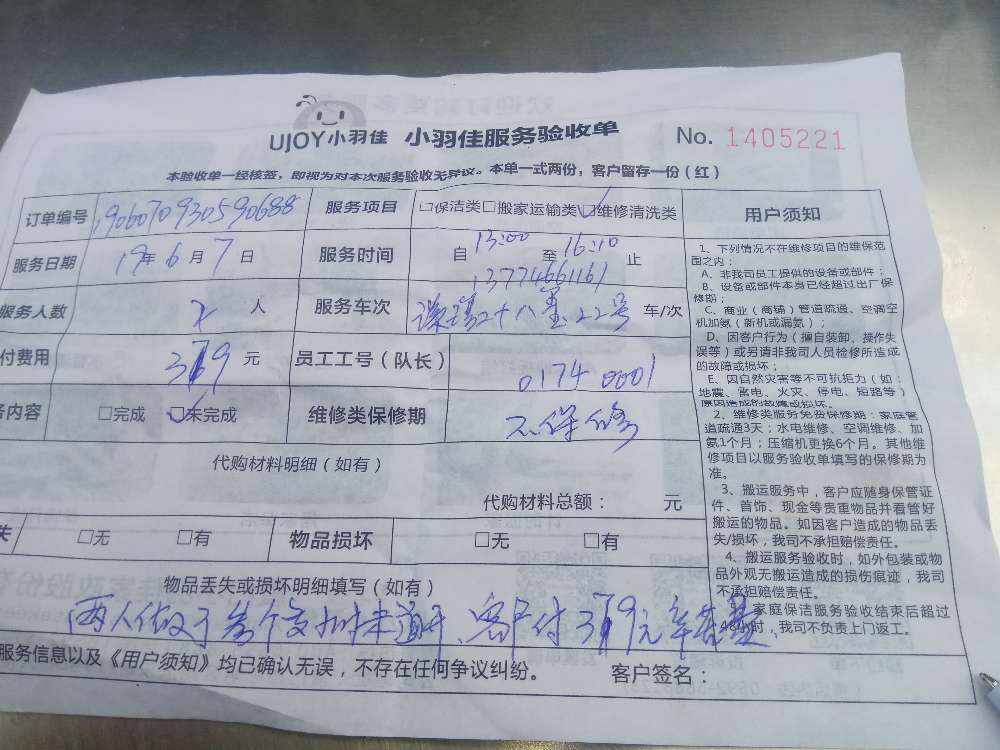 UJOY小羽佳 小羽佳服务验收单 No. 1405221
本验收单一经核签，即视为对本次服务验收无异议。本单一式两份，客户留存一份（红）
订单编号 1906070930590688 服务项目 □保洁类□搬家运输类☑维修清洗类
服务日期 19年6月7日 服务时间 自13:00至16:10止
13774661161
服务人数 2人 服务车次 22号 车/次
付费用 379元 员工工号（队长） 0174 0001
务内容 □完成 ☑未完成 维修类保修期 不保修
代购材料明细（如有）
代购材料总额： 元
失 □无 □有 物品损坏 □无 □有
物品丢失或损坏明细填写（如有）
两人做了 未通 客户付379元
服务信息以及《用户须知》均已确认无误，不存在任何争议纠纷。 客户签名：
用户须知
1、下列情况不在维修项目的维保范
围之内：
A、非我司员工提供的设备或部件；
B、设备或部件本身已经超过出厂保
修期；
C、商业（商铺）管道疏通、空调空
机加氨（新机或漏氨）；
D、因客户行为（擅自装卸、操作失
误等）或另请非我司人员检修所造成
的故障或损坏；
E、因自然灾害等不可抗拒力（如：
地震、雷电、火灾、停电、短路等）
原因造成的故障或损坏。
2、维修类服务免费保修期：家庭管
道疏通3天；水电维修、空调维修、加
氨1个月；压缩机更换6个月。其他维
修项目以服务验收单填写的保修期为
准。
3、搬运服务中，客户应随身保管证
件、首饰、现金等贵重物品并看管好
搬运的物品。如因客户造成的物品丢
失/损坏，我司不承担赔偿责任。
4、搬运服务验收时，如外包装或物
品外观无搬运造成的损伤痕迹，我司
不承担赔偿责任。
家庭保洁服务验收结束后超过
48小时，我司不负责上门返工。